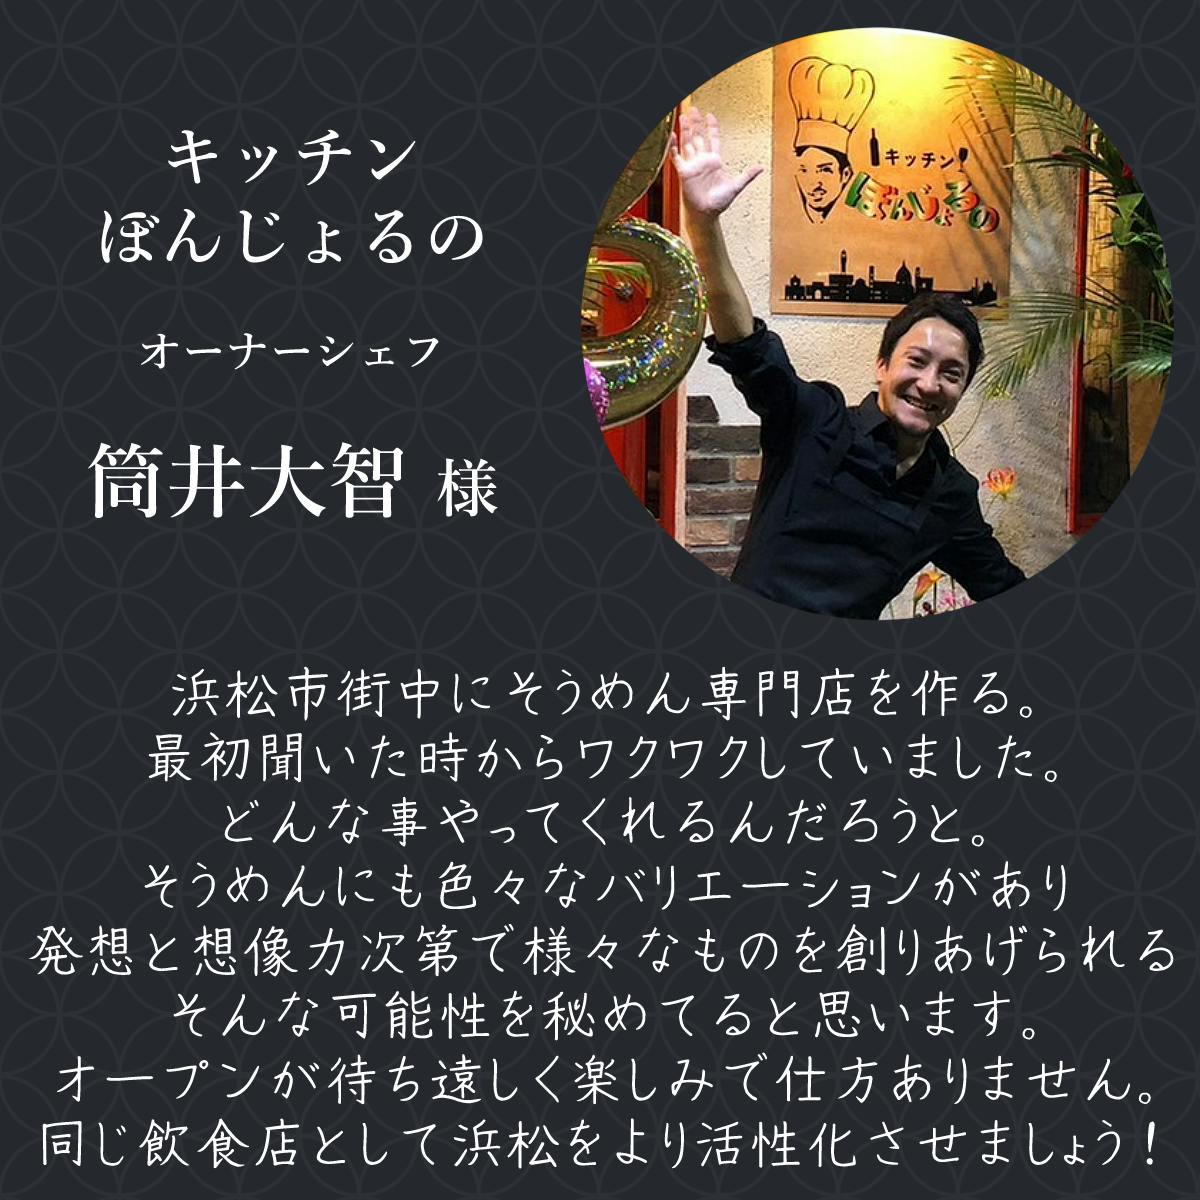 キッチン
ぼんじょるの
オーナーシェフ
筒井大智 様
キッチン
ぼんじょるの
浜松市街中にそうめん専門店を作る。
最初聞いた時からワクワクしていました。
どんな事やってくれるんだろうと。
そうめんにも色々なバリエーションがあり
発想と想像力次第で様々なものを創りあげられる
そんな可能性を秘めてると思います。
オープンが待ち遠しく楽しみで仕方ありません。
同じ飲食店として浜松をより活性化させましょう！